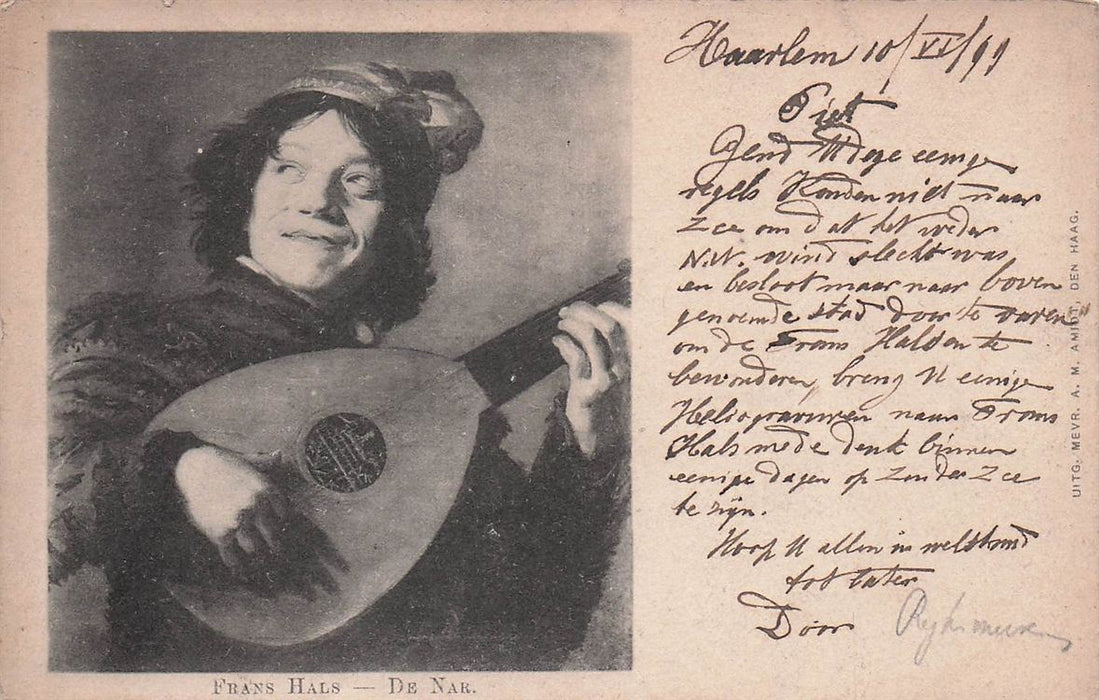 Haarlem 10/VI/99
Piet
Zend U deze eenige
regels Konden niet naar
Zee om dat het weder
N.W. wind slecht was
en besloot maar naar boven
genoemde stad door te varen
om de Frans Halsen te
bewonderen, breng U eenige
Heliogravuren naar Frans
Hals mede denk binnen
eenige dagen op Zee
te zijn.
Hoop U allen in welstand
tot later
Door
FRANS HALS — DE NAR.
UITG. MEVR. A. M. AMIOT, DEN HAAG.